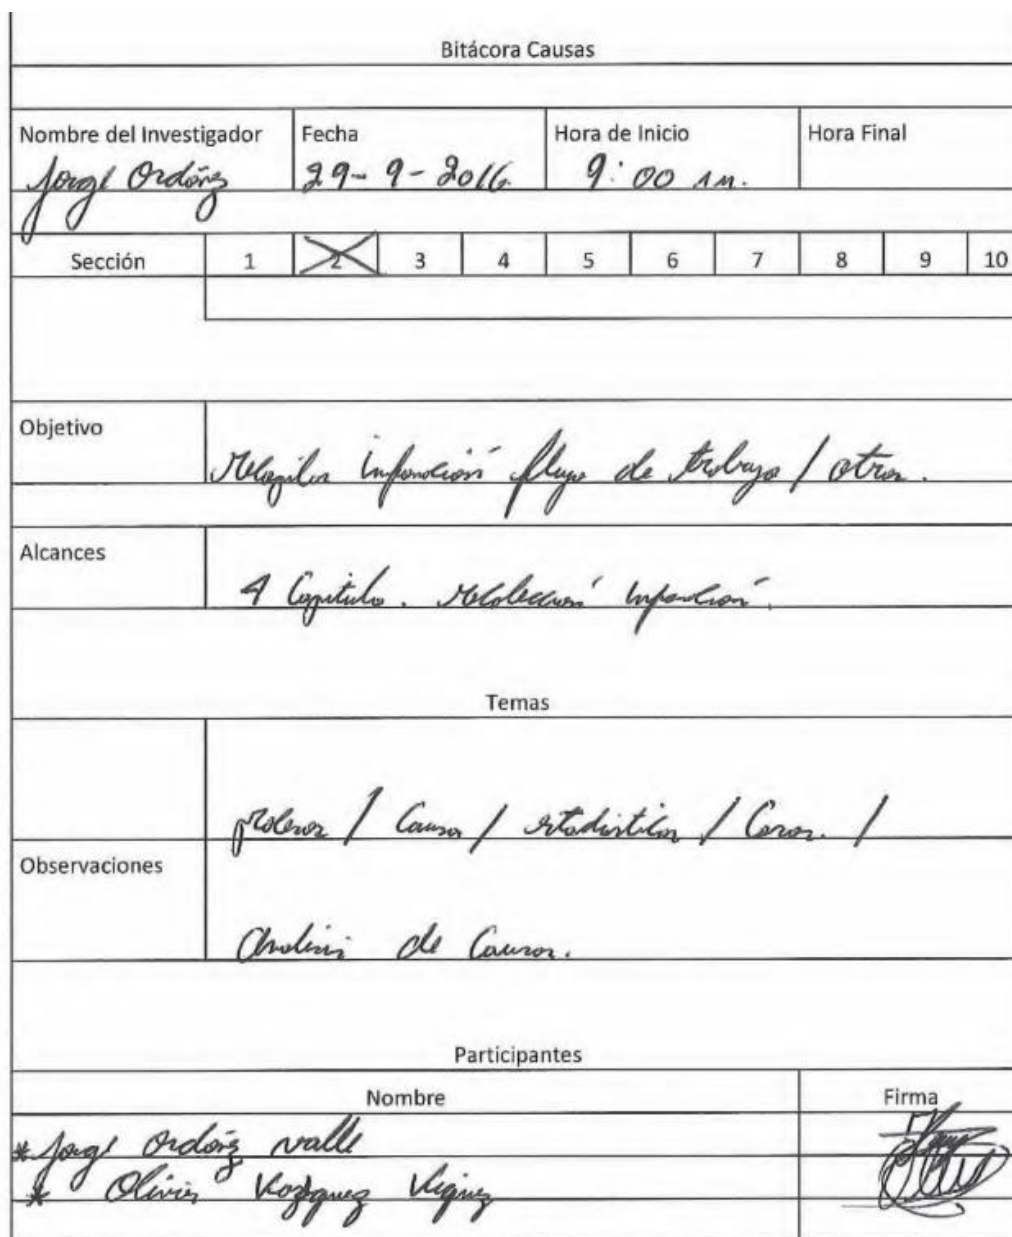 Bitácora Causas
Nombre del Investigador Fecha Hora de Inicio Hora Final
Jorge Ordóñez 29-9-2016. 9:00 am.
Sección 1 2 3 4 5 6 7 8 9 10
Objetivo
Recopilar información flujo de trabajo / otros.
Alcances
4 Capitulo. recolección información.
Temas
/ Causas / estadisticas / /
Observaciones
Analisis de Causas.
Participantes
Nombre Firma
* Jorge Ordóñez valle
* Olivier